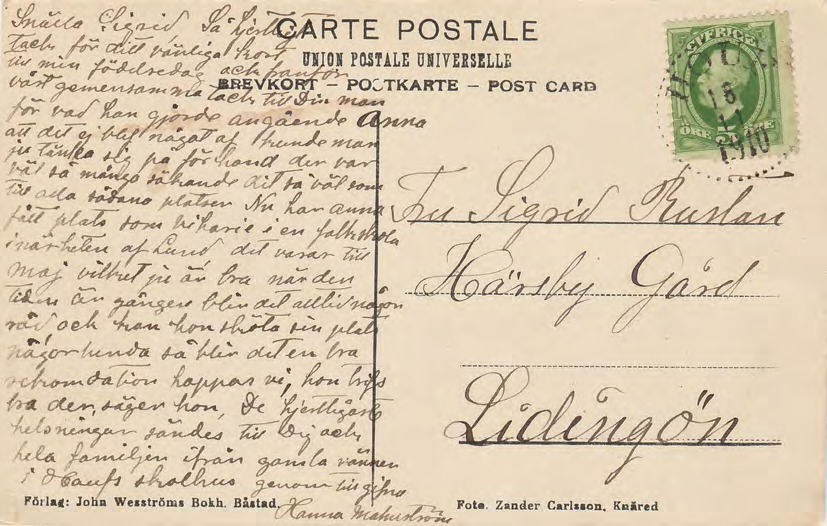 CARTE POSTALE
UNION POSTALE UNIVERSELLE
BREVKORT – POSTKARTE – POST CARD
SVERIGE
5 ÖRE 5 ÖRE
18
11
1910
Snälla Sigrid Så hjertligt
tack för ditt vänliga kort
till min födelsedag och framför
vårt gemensamma tack till Din man
för vad han gjorde angående Anna
att det ej blef något af kunde man
ju tänka sig på förhand der var
väl så många sökande dit så väl som
till alla sådana platser Nu har Anna
fått plats som vikarie i en folkskola
i närheten af Lund det varar till
maj vilket ju är bra när den
tiden är gången blir det alltid någon
råd och kan hon sköta sin plats
någorlunda så blir det en bra
rekomdation hoppas vi, hon trifs
bra der, säger hon, De hjertligaste
helsningar sändes till Dig och
hela familjen ifrån gamla vännen
i skolhus genom tillgifna
Hanna
Fru Sigrid Ruslan
Härsby Gård
Lidingön
Förlag: John Wesströms Bokh. Båstad.
Foto. Zander Carlsson, Knäred